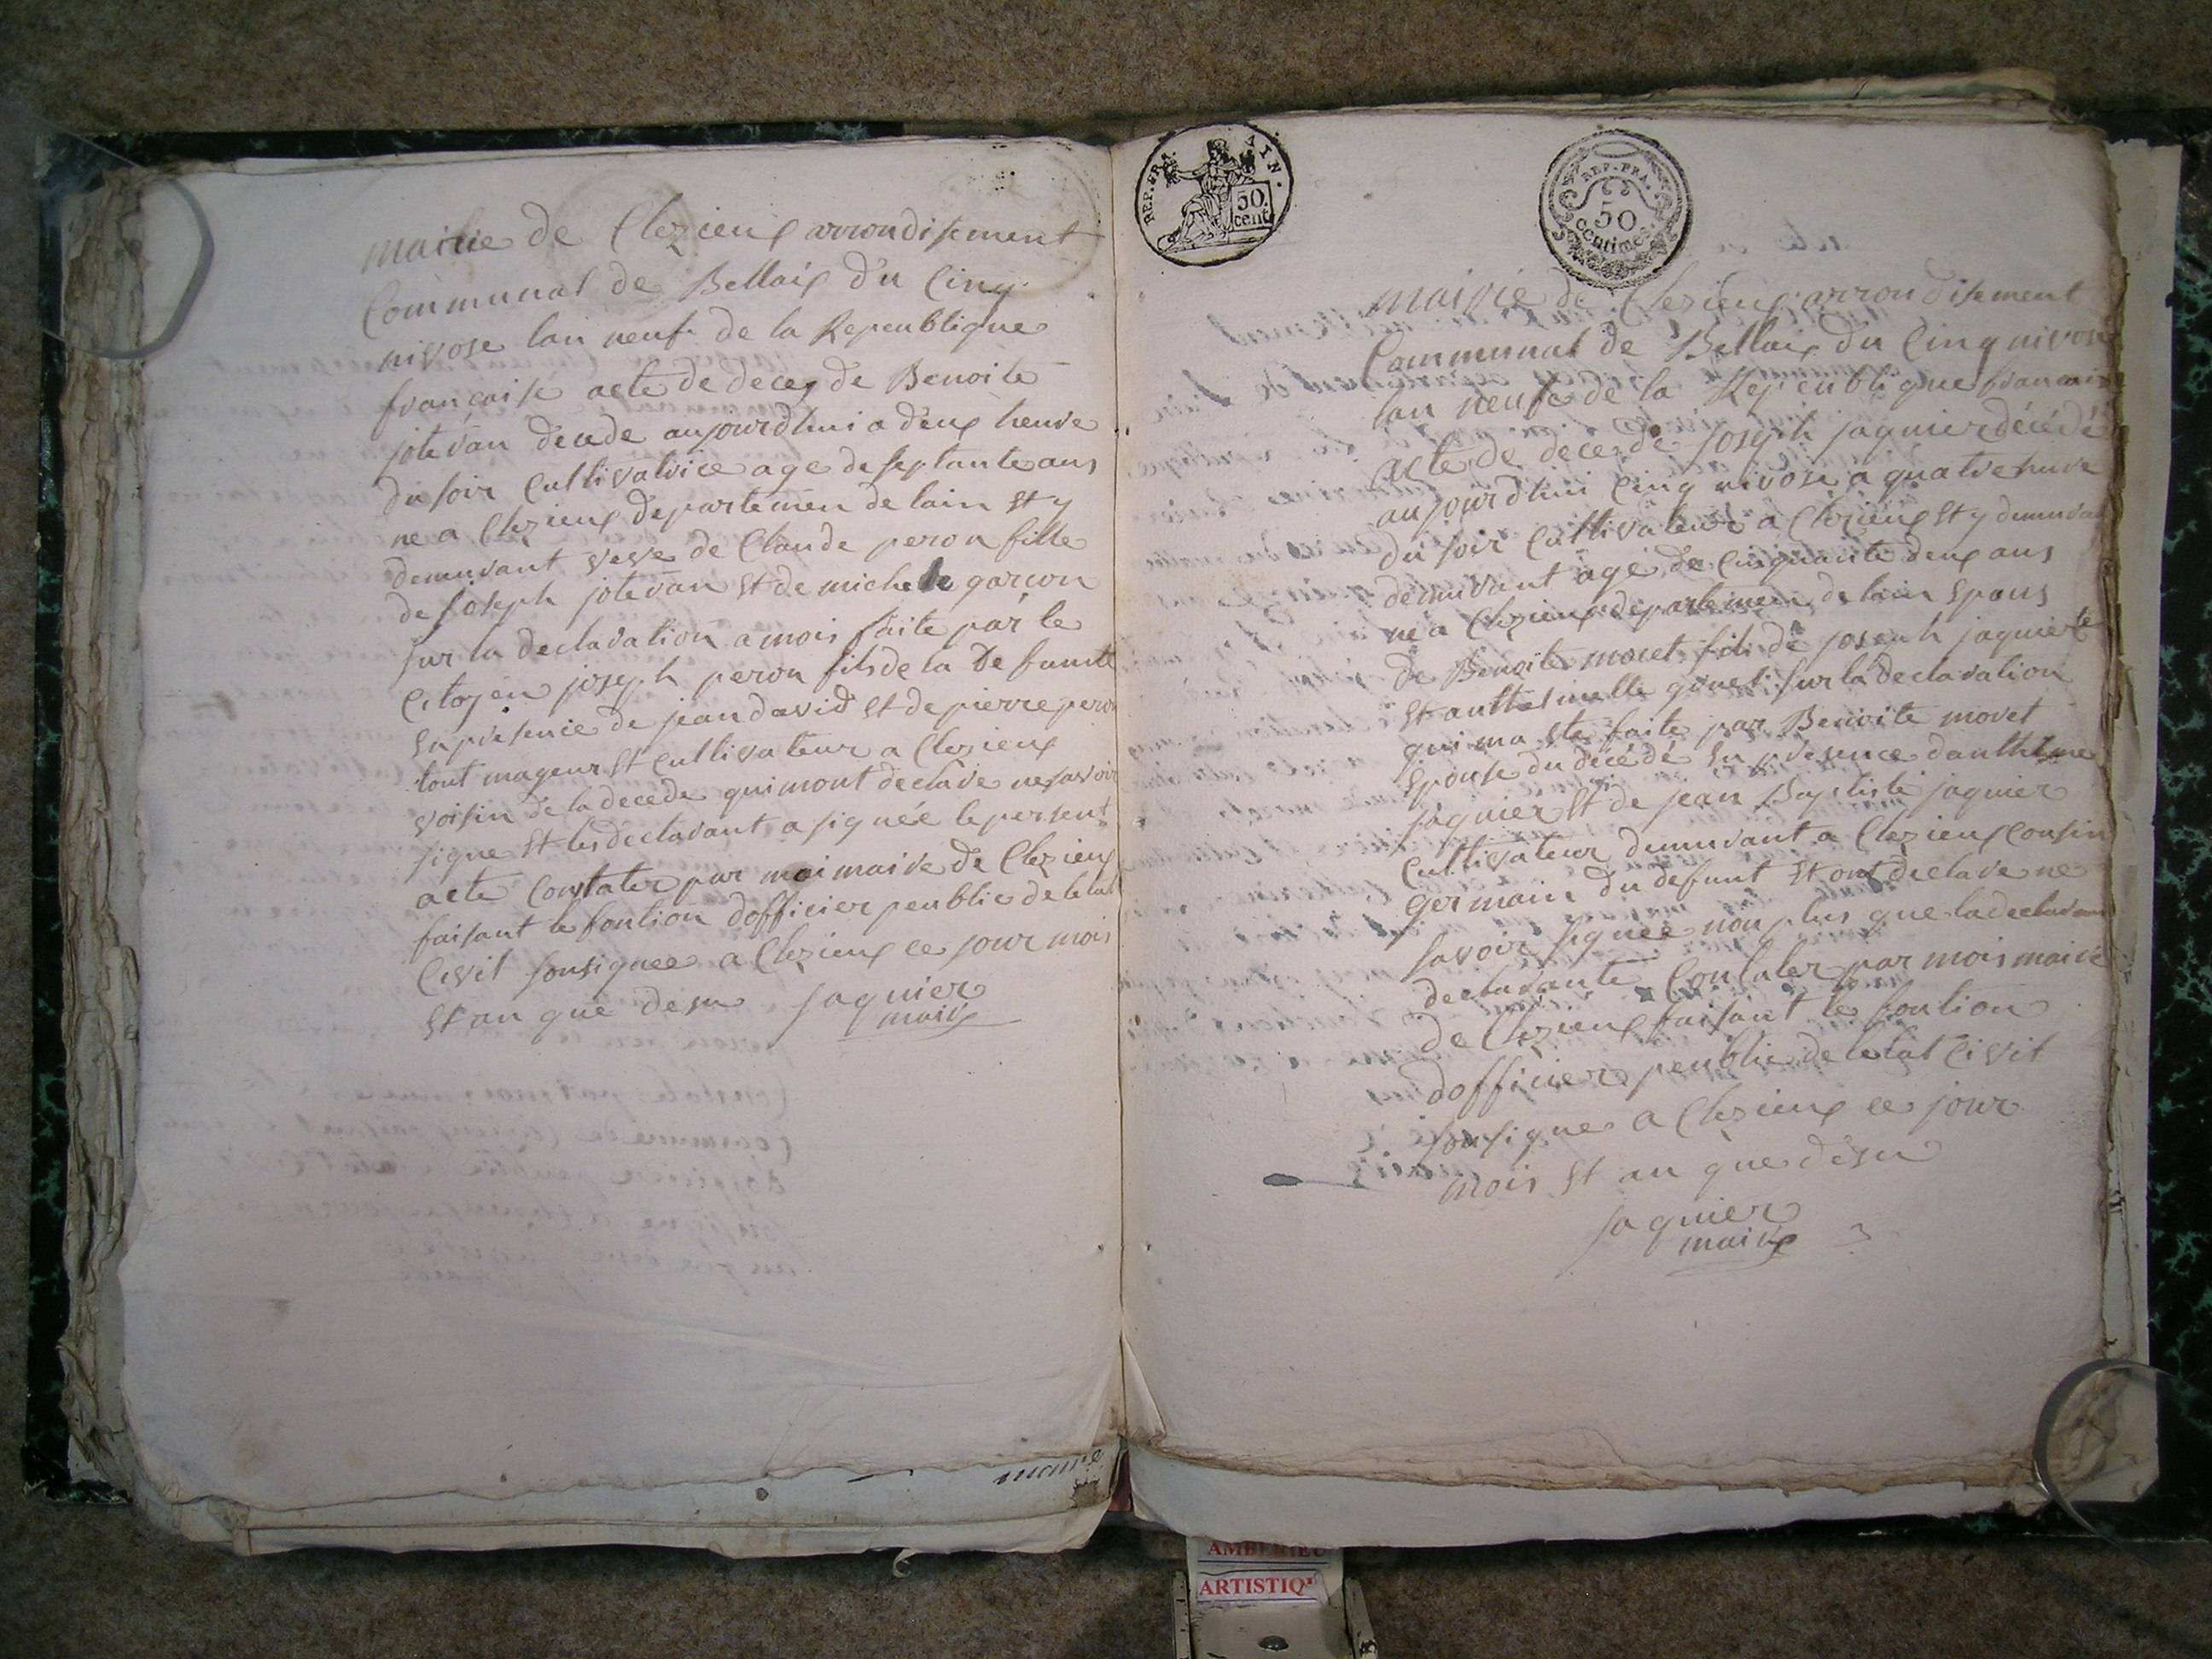 mairie de Clezieux arrondisement
Communal de Bellaix du Cinq
nivose lan neuf de la Repeublique
francaise acte de deces de Benoite
jotevan decede aujourdhui a deux heure
du soir Cultivatrice age de septante ans
ne a Clezieux departemen de lain et y
demurant veve de Claude peron fille
de joseph jotevan et de michele garcon
sur la declaration a mois faite par le
Citoyen joseph peron fils de la defunte
en presence de jean david et de pierre peron
tout mageur et cultivateur a Clezieux
voisin de la decede qui mont declare ne savoir
signe et les declarant a signée le persent
acte Constater par moi maire de Clezieux
faisant le fontion dofficier peublic de letat
Civil sousignee a Clezieux ce jour mois
et an que desu jaquier
maire
maire
REP. FRA. AIN.
50.
cent
REP. FRA.
50
centimes.
mairie de Clezieux arrondisement
Communal de Bellaix du Cinq nivose
lan neuf de la Repeublique francaise
acte de deces de joseph jaquier décédé
aujourdhui Cinq nivose a quatre heure
du soir Cultivateur a Clezieux et y demurant
demurant age de Cinquante deux ans
ne a Clezieux departemen de lain epous
de Benoite moret fils de joseph jaquier
et anthelmelle gonet sur la declaration
qui ma ete faite par Benoite moret
epouse du décédé en presence danthelme
jaquier et de jean Baptiste jaquier
Cultivateur demurant a Clezieux Cousin
germain du defunt et ont declare ne
savoir signée non plus que la declarante
declarante Contater par mois mairie
de Clezieux faisant le fontion
dofficier peublic de letat Civil
sousigne a Clezieux ce jour
mois et an que desu
jaquier
maire
AMBERIEU
ARTISTIQ